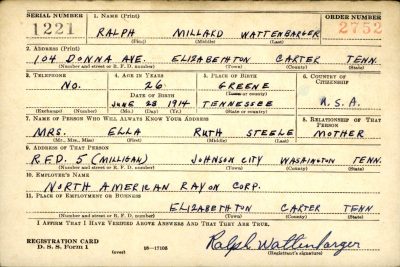 SERIAL NUMBER 1. NAME (Print) ORDER NUMBER
1221 RALPH MILLARD WATTENBARGER 2752
(First) (Middle) (Last)
2. ADDRESS (Print)
104 DONNA AVE. ELIZABETHTON CARTER TENN.
(Number and street or R. F. D. number) (Town) (County) (State)
3. TELEPHONE 4. AGE IN YEARS 5. PLACE OF BIRTH 6. COUNTRY OF CITIZENSHIP
NO. 26 GREENE
DATE OF BIRTH (Town or county)
JUNE 28 1914 TENNESSEE U.S.A.
(Exchange) (Number) (Mo.) (Day) (Yr.) (State or country)
7. NAME OF PERSON WHO WILL ALWAYS KNOW YOUR ADDRESS 8. RELATIONSHIP OF THAT PERSON
MRS. ELLA RUTH STEELE MOTHER
(Mr., Mrs., Miss) (First) (Middle) (Last)
9. ADDRESS OF THAT PERSON
R.F.D. 5 (MILLIGAN) JOHNSON CITY WASHINGTON TENN.
(Number and street or R. F. D. number) (Town) (County) (State)
10. EMPLOYER'S NAME
NORTH AMERICAN RAYON CORP.
11. PLACE OF EMPLOYMENT OR BUSINESS
ELIZABETHTON CARTER TENN
(Number and street or R. F. D. number) (Town) (County) (State)
I AFFIRM THAT I HAVE VERIFIED ABOVE ANSWERS AND THAT THEY ARE TRUE.
REGISTRATION CARD
D. S. S. Form 1 (over) 16—17105 Ralph Wattenbarger
(Registrant's signature)